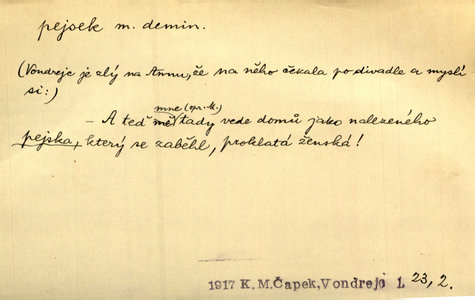 pejsek m. demin.
(Vondrejc je zlý na Annu, že na něho čekala po divadle a myslí
si:)
mne (opr. M.)
– A teď mě tady vede domů jako nalezeného
pejska, který se zaběhl, proklatá ženská!
1917 K. M. Čapek, Vondrejc I, 23, 2.